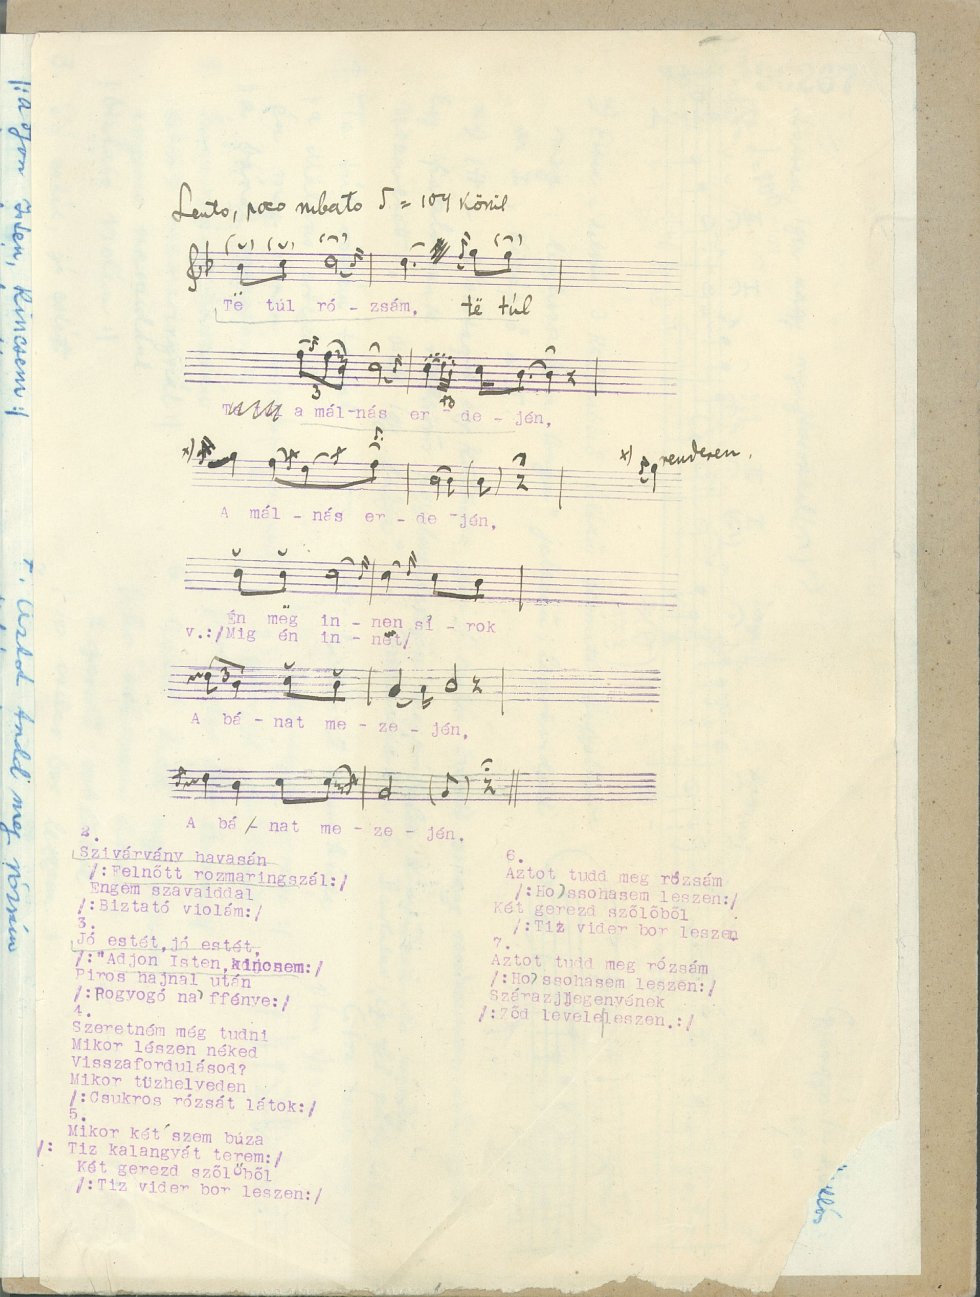 Lento, poco rubato ♪ = 104 körül
Të túl ró - zsám, të túl
a mál-nás er - de - jén,
3
A mál - nás er - de -jén,
x) renderen.
Én mëg in - nen sí - rok
v.:/Mig én in - net/
3
A bá - nat me - ze - jén,
A bá - nat me - ze - jén.
2.
Szivárvány havasán
/:Felnőtt rozmaringszál:/
Engem szavaiddal
/:Biztató violám:/
3.
Jó estét,jó estét,
/:"Adjon Isten,kincsem:/
Piros hajnal után
/:Rogyogó na ffénye:/
4.
Szeretném még tudni
Mikor lészen néked
Visszafordulásod?
Mikor tüzhelveden
/:Csukros rózsát látok:/
5.
Mikor két szem búza
/: Tiz kalangvát terem:/
Két gerezd szőlőből
/:Tiz vider bor leszen:/
6.
Aztot tudd meg rózsám
/:Ho ssohasem leszen:/
Két gerezd szőlőből
/:Tiz vider bor leszen
7.
Aztot tudd meg rózsám
/:Ho ssohasem leszen:/
Száraz jegenyének
/:Ződ levele leszen.:/
|:adjon Isten, kincsem:|
meg rózsám